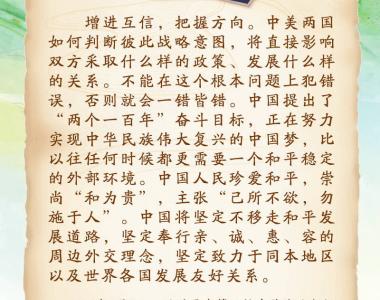 增进互信，把握方向。中美两国
如何判断彼此战略意图，将直接影响
双方采取什么样的政策、发展什么样
的关系。不能在这个根本问题上犯错
误，否则就会一错皆错。中国提出了
“两个一百年”奋斗目标，正在努力
实现中华民族伟大复兴的中国梦，比
以往任何时候都更需要一个和平稳定
的外部环境。中国人民珍爱和平，崇
尚“和为贵”，主张“己所不欲，勿
施于人”。中国将坚定不移走和平发
展道路，坚定奉行亲、诚、惠、容的
周边外交理念，坚定致力于同本地区
以及世界各国发展友好关系。